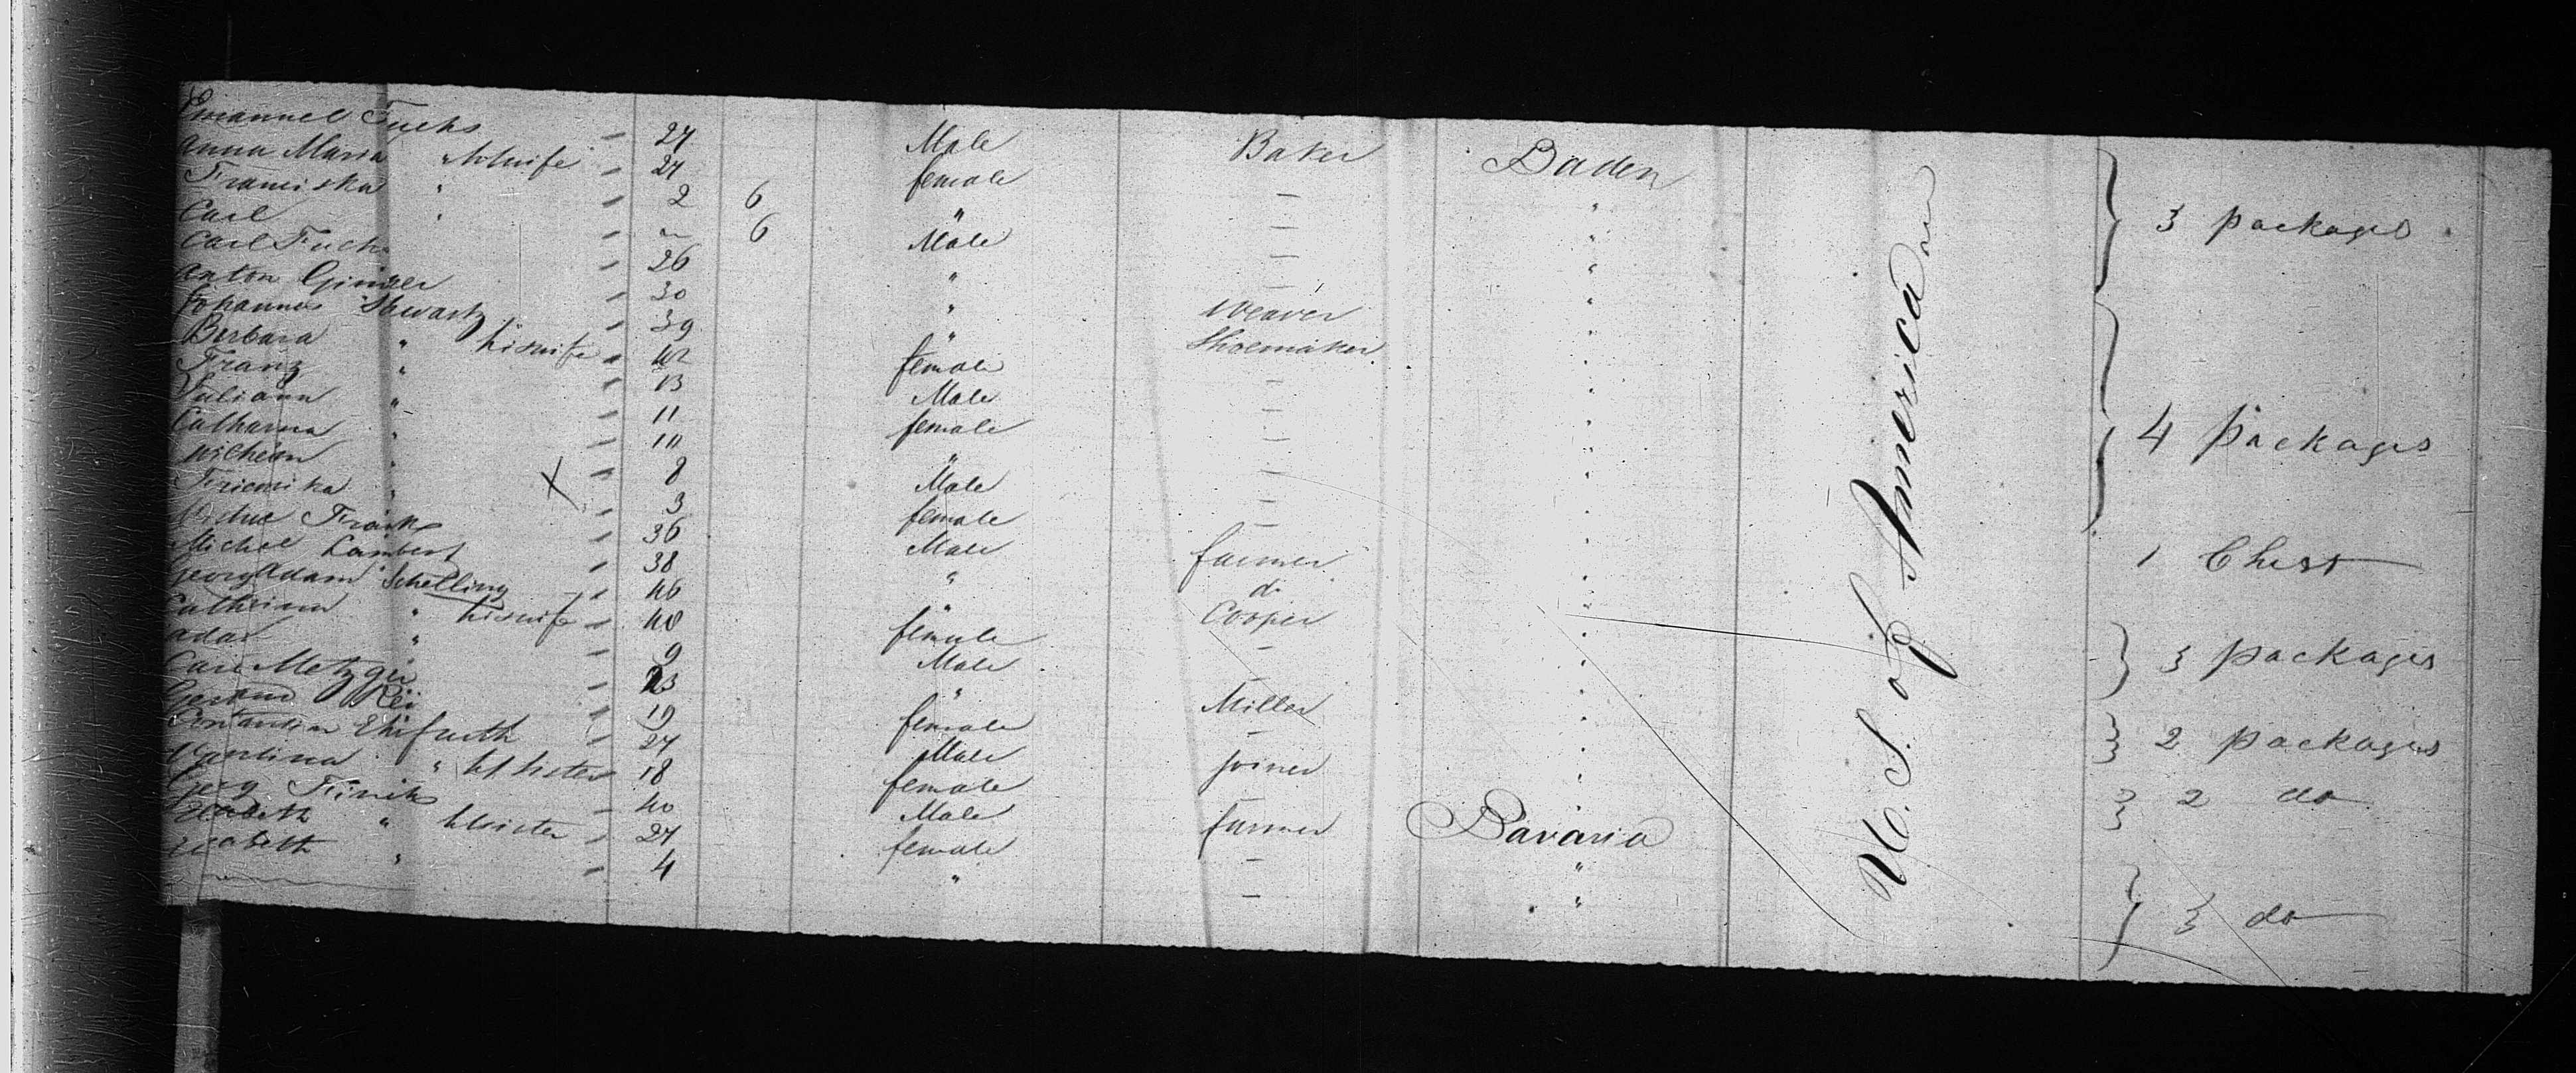 Emanuel Fuchs " 27 Male Baker Baden
Anna Maria " his wife " 27 female — "
Franciska " " 2 6 " — "
Carl " " — 6 Male — "
Carl Fuchs " 26 " — "
Anton Ginder " 30 " Weaver "
Johannes Shwartz " 39 " Shoemaker "
Berbara " his wife " 42 female — "
Franz " " 13 Male — "
Juliann " " 11 female — "
Catharina " " 10 " — "
Wilhelm " " 8 Male — "
" X " 3 female — "
Franks " 36 Male farmer "
Michel Lambert " 38 " do "
Georg Adam Schelling " 46 " Cooper "
Cathrina " his wife " 40 female — "
Adam " " 9 Male — "
Carl Metzger " 23 " Miller "
" 19 female — "
" 27 Male joiner "
" his sister 18 female — "
Georg " 40 Male farmer Bavaria
Elisabeth " his sister " 27 female — "
Elisabeth " " 4 " — "
U. S. of America
3 packages
4 packages
1 Chest
3 packages
2 packages
2 do
3 do